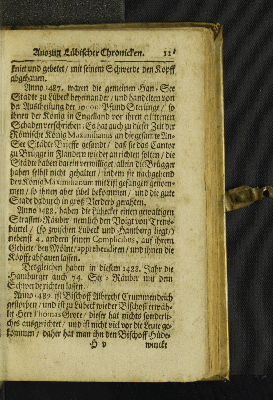 Auszug Lübischer Chronicken.
kniet und gebetet / mit seinem Schwerde den Kopff
abgehauen.
Anno 1487. waren die gemeinen Han-See
Städte zu Lübeck beyeinander / und handelten von
der Außtheilung der 10000. Pfund Sterlinge / so
ihnen der König in Engelland vor ihren erlittenen
Schaden verschrieben: Es hat auch zu dieser Zeit der
Römische König Maximilianus an die gesamte An-
See Städte Brieffe gesandt / daß sie das Cantor
zu Brügge in Flandern wieder anrichten solten / die
Städte haben darein verwilliget / allein die Brügger
haben selbst nicht gehalten / indem sie nachgehend
den König Maximilianum mit list gefangen genom-
men / so ihnen aber übel bekommen / und die gute
Stadt dadurch in groß Verderb gerahten.
Anno 1488. haben die Lübecker einen gewaltigen
Strassen-Räuber / nemlich den Voigt von Trems-
büttel / (so zwischen Lübeck und Hamburg liegt)
nebenst 4. andern seinen Complicibus, auf ihrem
Gebiete / bey Mölln / apprehendiren / und ihnen die
Köpffe abhauen lassen.
Desgleichen haben in diesem 1488. Jahr die
Hamburger auch 74. See-Räuber mit dem
Schwerd richten lassen.
Anno 1489. ist Bischoff Albrecht Crummendieck
gestorben / und ist zu Lübeck wieder Bischoff erwäh-
let Herr Thomas Grote / dieser hat nichts sonderli-
ches außgerichtet / und ist nicht viel vor die Leute ge-
kommen / daher hat man ihn den Bischoff Hüde-
H v